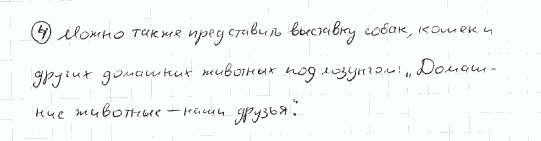 ④ Можно также представить выставку собак, кошек и
других домашних животных под лозунгом: „Домаш-
ние животные — наши друзья".